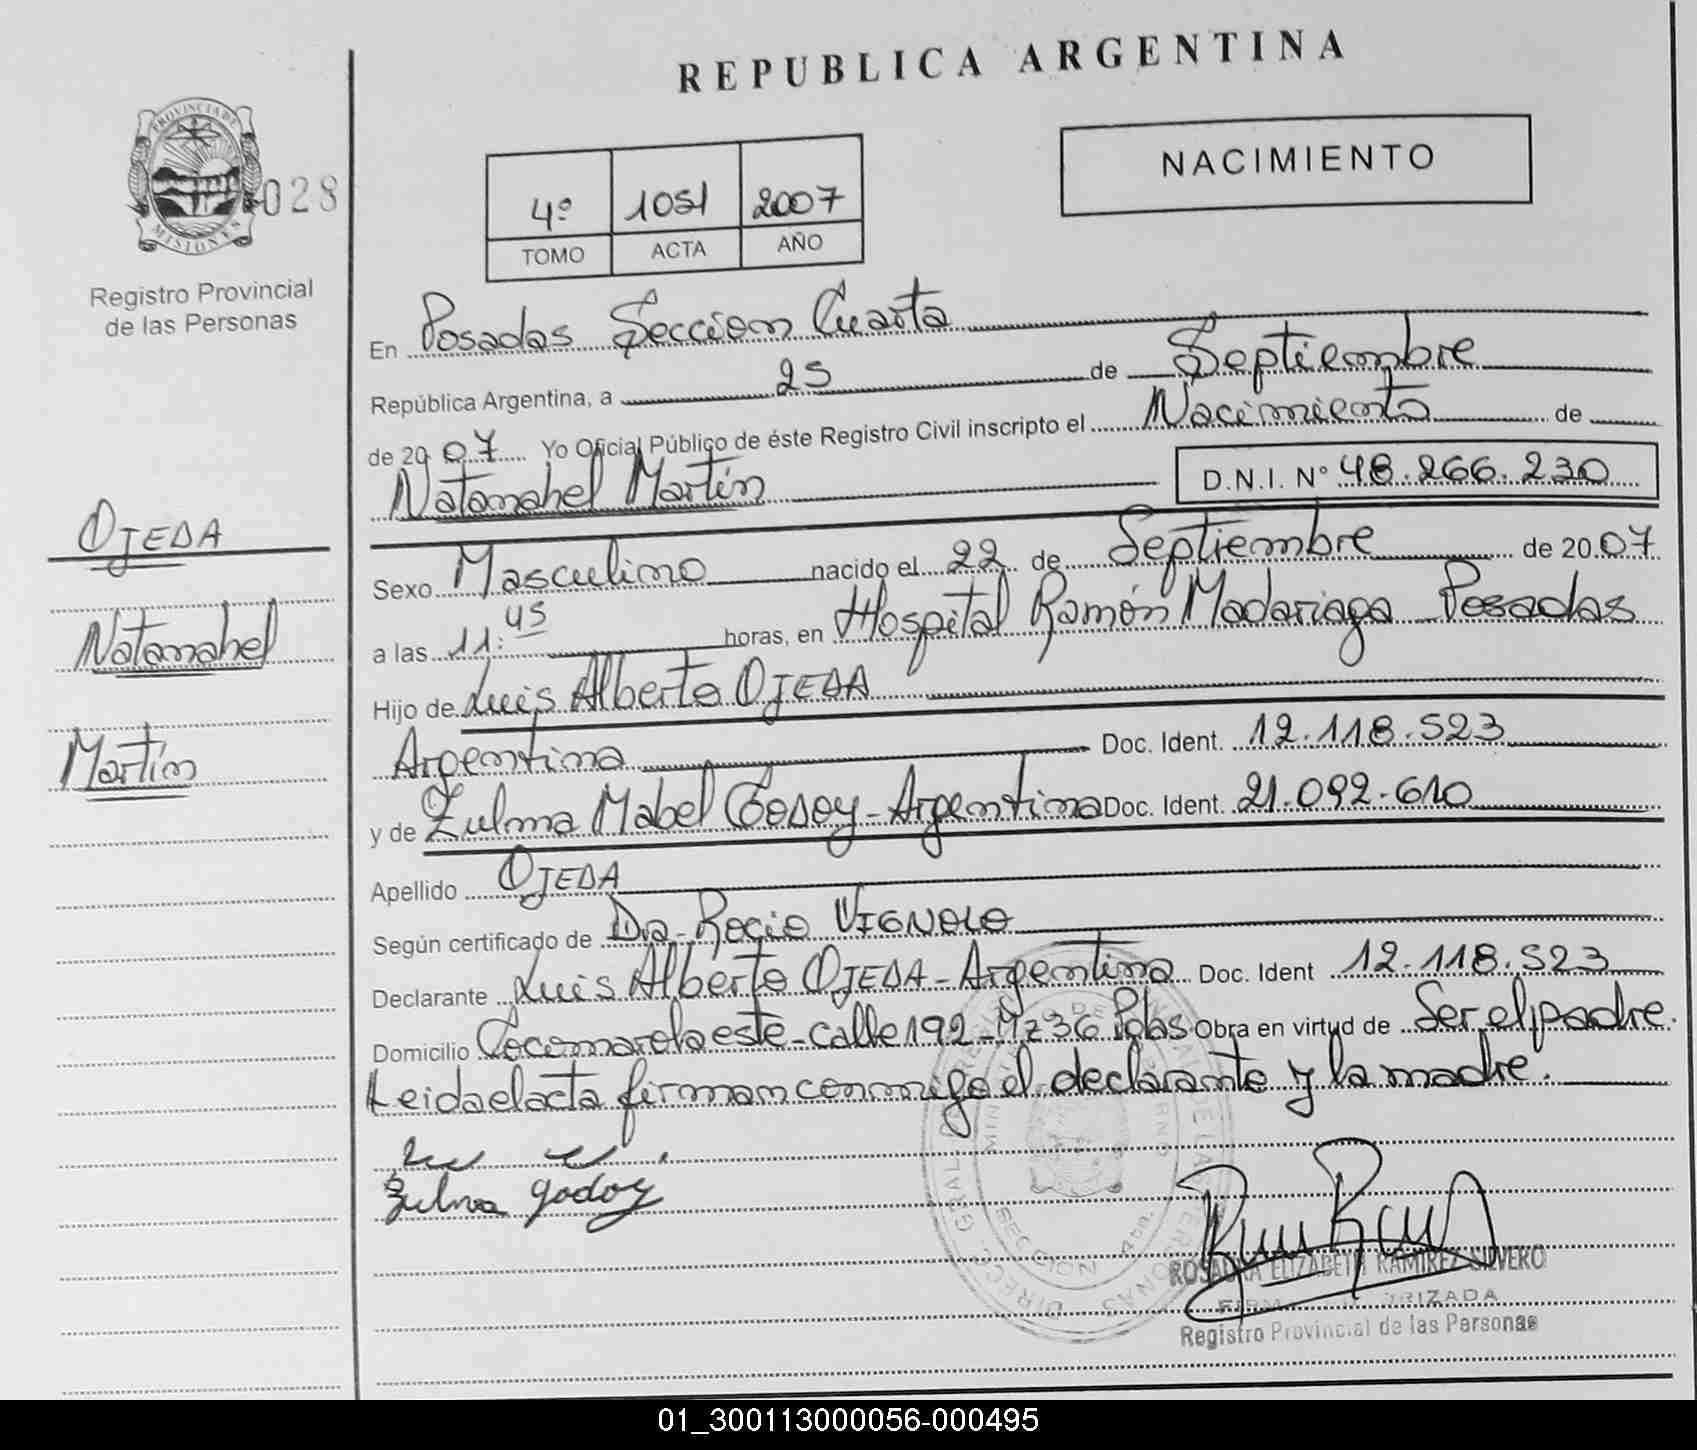 REPUBLICA ARGENTINA
PROVINCIA DE
MISIONES
028
Registro Provincial
de las Personas
NACIMIENTO
4º 1051 2007
TOMO ACTA AÑO
En Posadas Seccion Cuarta
República Argentina, a 25 de Septiembre
de 2007 Yo Oficial Público de éste Registro Civil inscripto el Nacimiento de
Natanahel Martín D.N.I. Nº 48.266.230
OJEDA
Natanahel
Martín
Sexo Masculino nacido el 22 de Septiembre de 2007
a las 11:45 horas, en Hospital Ramón Madariaga Posadas
Hijo de Luis Alberto OJEDA
Argentina Doc. Ident. 12.118.523
y de Zulma Mabel GODOY - Argentina Doc. Ident. 21.092.610
Apellido OJEDA
Según certificado de Dra. Rocio VIGNOLO
Declarante Luis Alberto OJEDA - Argentina Doc. Ident 12.118.523
Domicilio Cocomarola este - calle 192 - Mz 36 Pdas Obra en virtud de Ser el padre.
Leida el acta firman conmigo el declarante y la madre.
Zulma godoy
ROSAURA ELIZABETH RAMIREZ SILVERO
FIRMA AUTORIZADA
Registro Provincial de las Personas
01_300113000056-000495